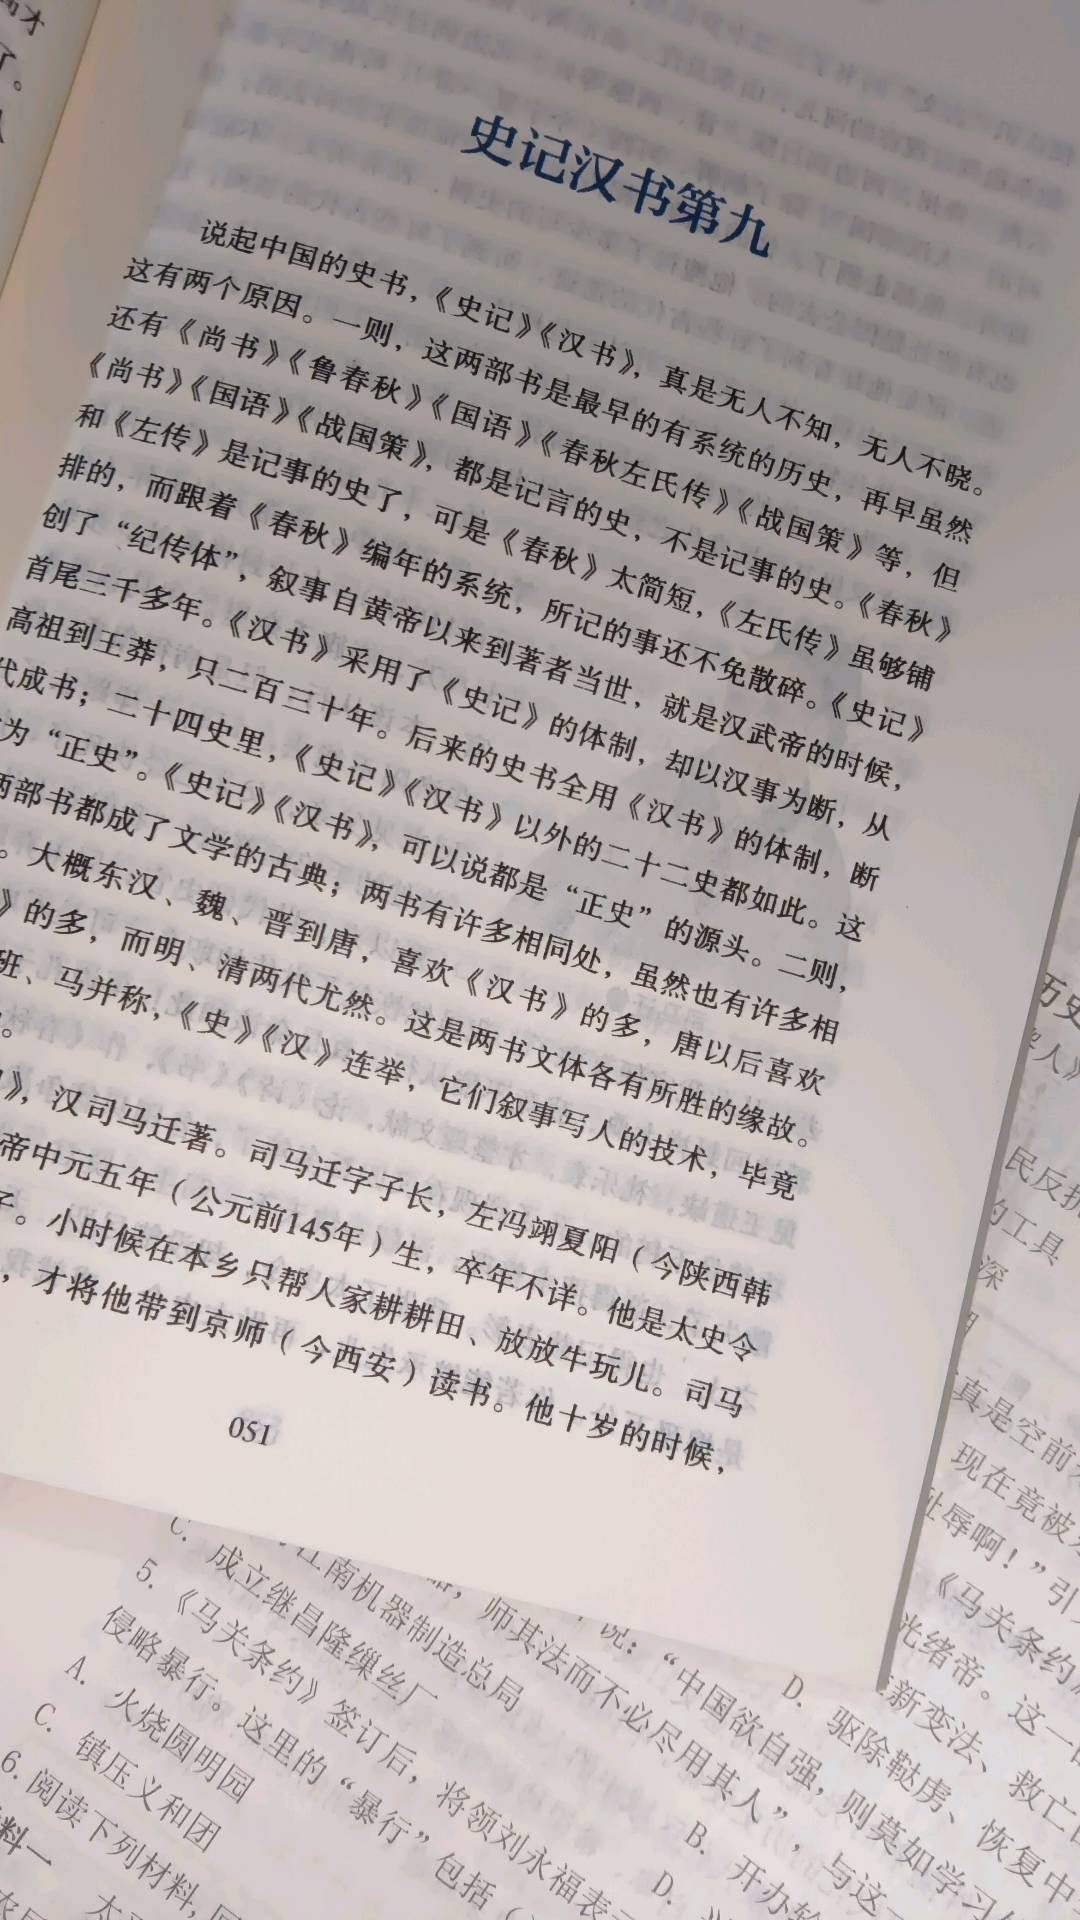 高才
了。
史记汉书第九
说起中国的史书，《史记》《汉书》，真是无人不知，无人不晓。
这有两个原因。一则，这两部书是最早的有系统的历史，再早虽然
还有《尚书》《鲁春秋》《国语》《春秋左氏传》《战国策》等，但
《尚书》《国语》《战国策》，都是记言的史，不是记事的史。《春秋》
和《左传》是记事的史了，可是《春秋》太简短，《左氏传》虽够铺
排的，而跟着《春秋》编年的系统，所记的事还不免散碎。《史记》
创了“纪传体”，叙事自黄帝以来到著者当世，就是汉武帝的时候，
首尾三千多年。《汉书》采用了《史记》的体制，却以汉事为断，从
高祖到王莽，只二百三十年。后来的史书全用《汉书》的体制，断
代成书；二十四史里，《史记》《汉书》以外的二十二史都如此。这
为“正史”。《史记》《汉书》，可以说都是“正史”的源头。二则，
两部书都成了文学的古典；两书有许多相同处，虽然也有许多相
。大概东汉、魏、晋到唐，喜欢《汉书》的多，唐以后喜欢
》的多，而明、清两代尤然。这是两书文体各有所胜的缘故。
班、马并称，《史》《汉》连举，它们叙事写人的技术，毕竟
。
》，汉司马迁著。司马迁字子长，左冯翊夏阳（今陕西韩
帝中元五年（公元前145年）生，卒年不详。他是太史令
子。小时候在本乡只帮人家耕耕田、放放牛玩儿。司马
，才将他带到京师（今西安）读书。他十岁的时候，
051
历史
人》
民反抗
的工具
深
真是空前
现在竟被
耻辱啊！”引
《马关条约》
光绪帝。这一
新变法、救亡
D. 驱除鞑虏、恢复中
江南机器制造总局
C. 成立继昌隆缫丝厂
师其法而不必尽用其人”，与这一
说：“中国欲自强，则莫如学习
B. 开办轮
D.
5. 《马关条约》签订后，将领刘永福表
侵略暴行。这里的“暴行”包括（
A. 火烧圆明园
C. 镇压义和团
6. 阅读下列材料，回
料一